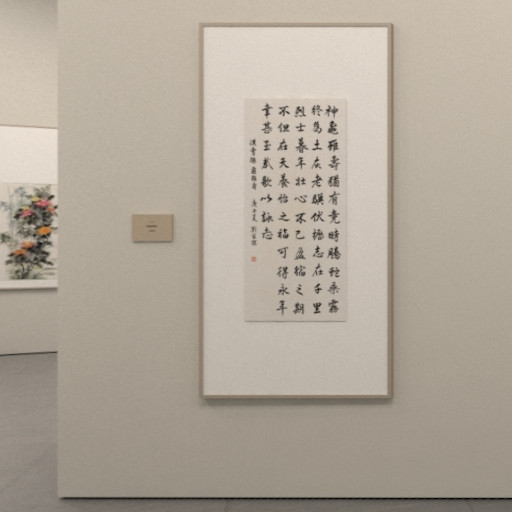 神龜雖壽猶有竟時騰蛇乘霧
終為土灰老驥伏櫪志在千里
烈士暮年壯心不已盈縮之期
不但在天養怡之福可得永年
幸甚至哉歌以詠志